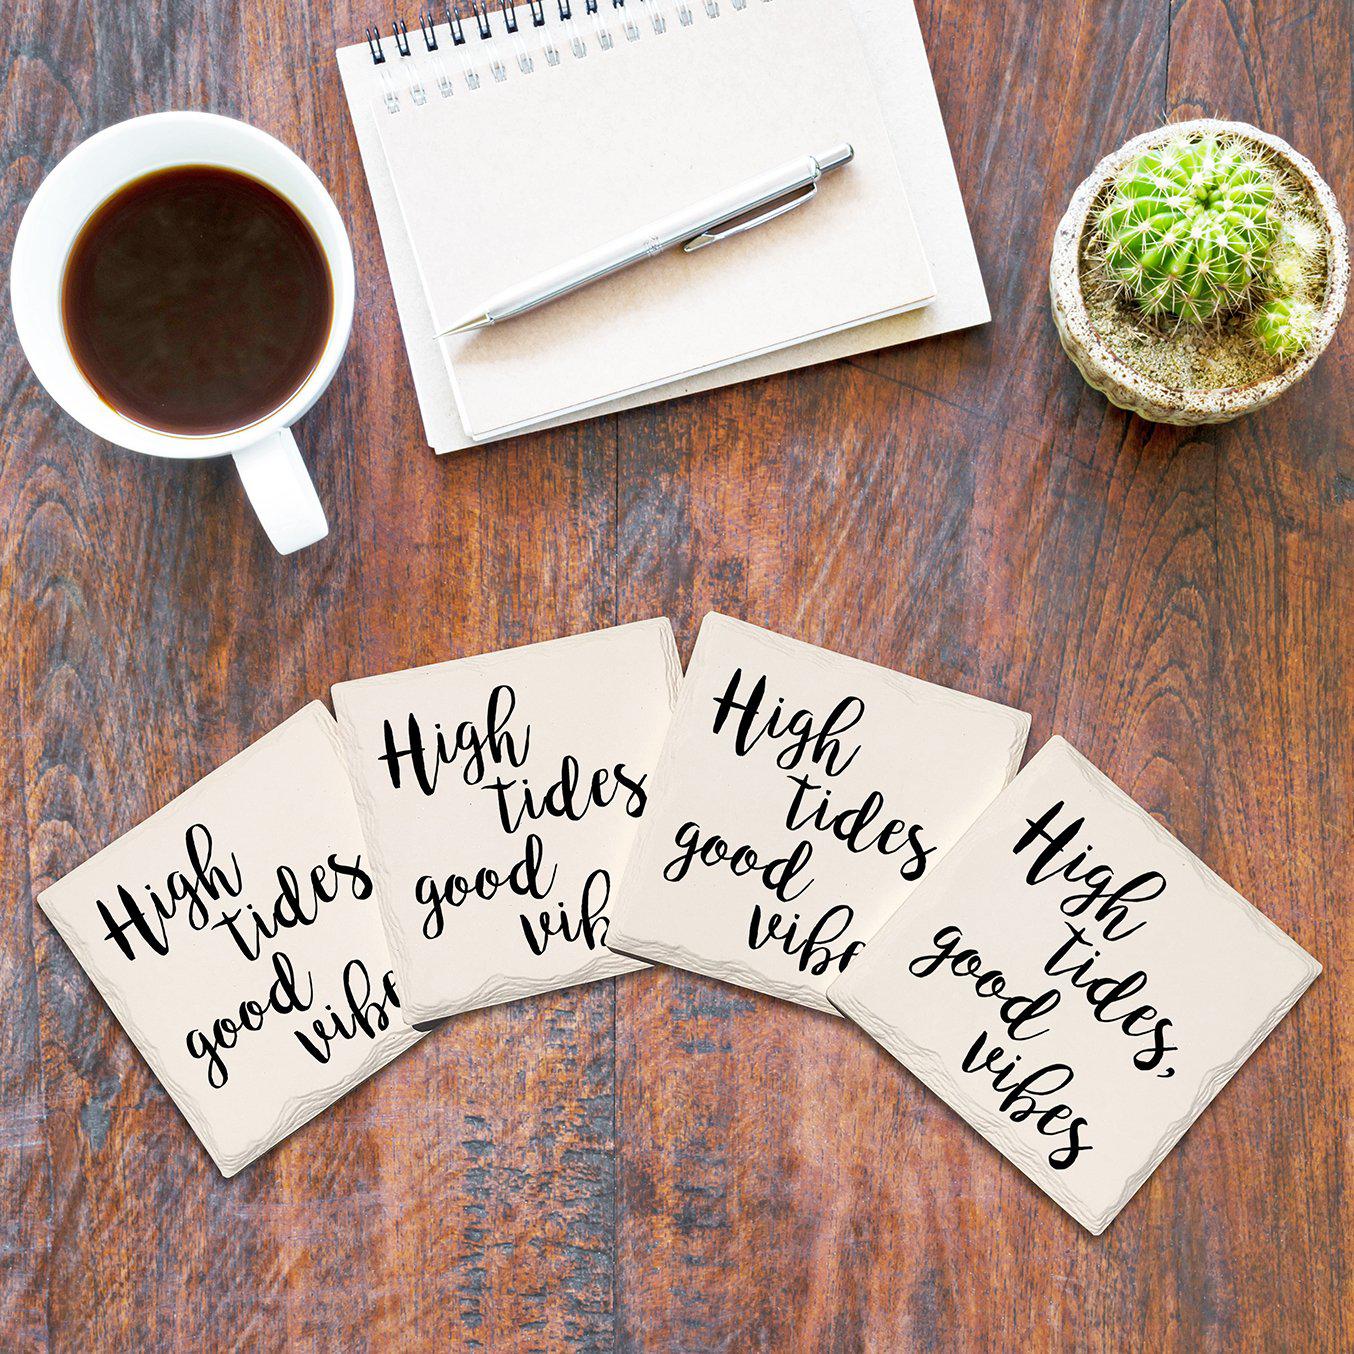 High
tides
good
vibe
High
tides
good
vib
High
tides
good
vibe
High
tides,
good
vibes